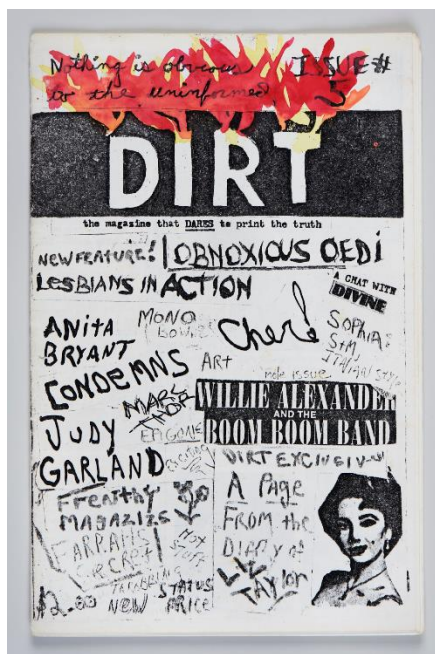 Nothing is obvious
to the uninformed
ISSUE #
5
DIRT
the magazine that DARES to print the truth
NEW FEATURE! OBNOXIOUS OEDI
LESBIANS IN ACTION
A CHAT WITH
DIVINE
ANITA
BRYANT
CONDEMNS
JUDY
GARLAND
MONO
Cher!
SOPHIA:
S+M,
ITALIAN STYLE
ART
MARC
THOR
issue
WILLIE ALEXANDER
AND THE
BOOM BOOM BAND
DIRT EXCLUSIVE
A Page
FROM the
DIARY of
LIZ
TAYlor
FFENTHY
MAGAZIZS
HOT
STUFF
SECRET
$2.00
NEW
STATUS
PRICE